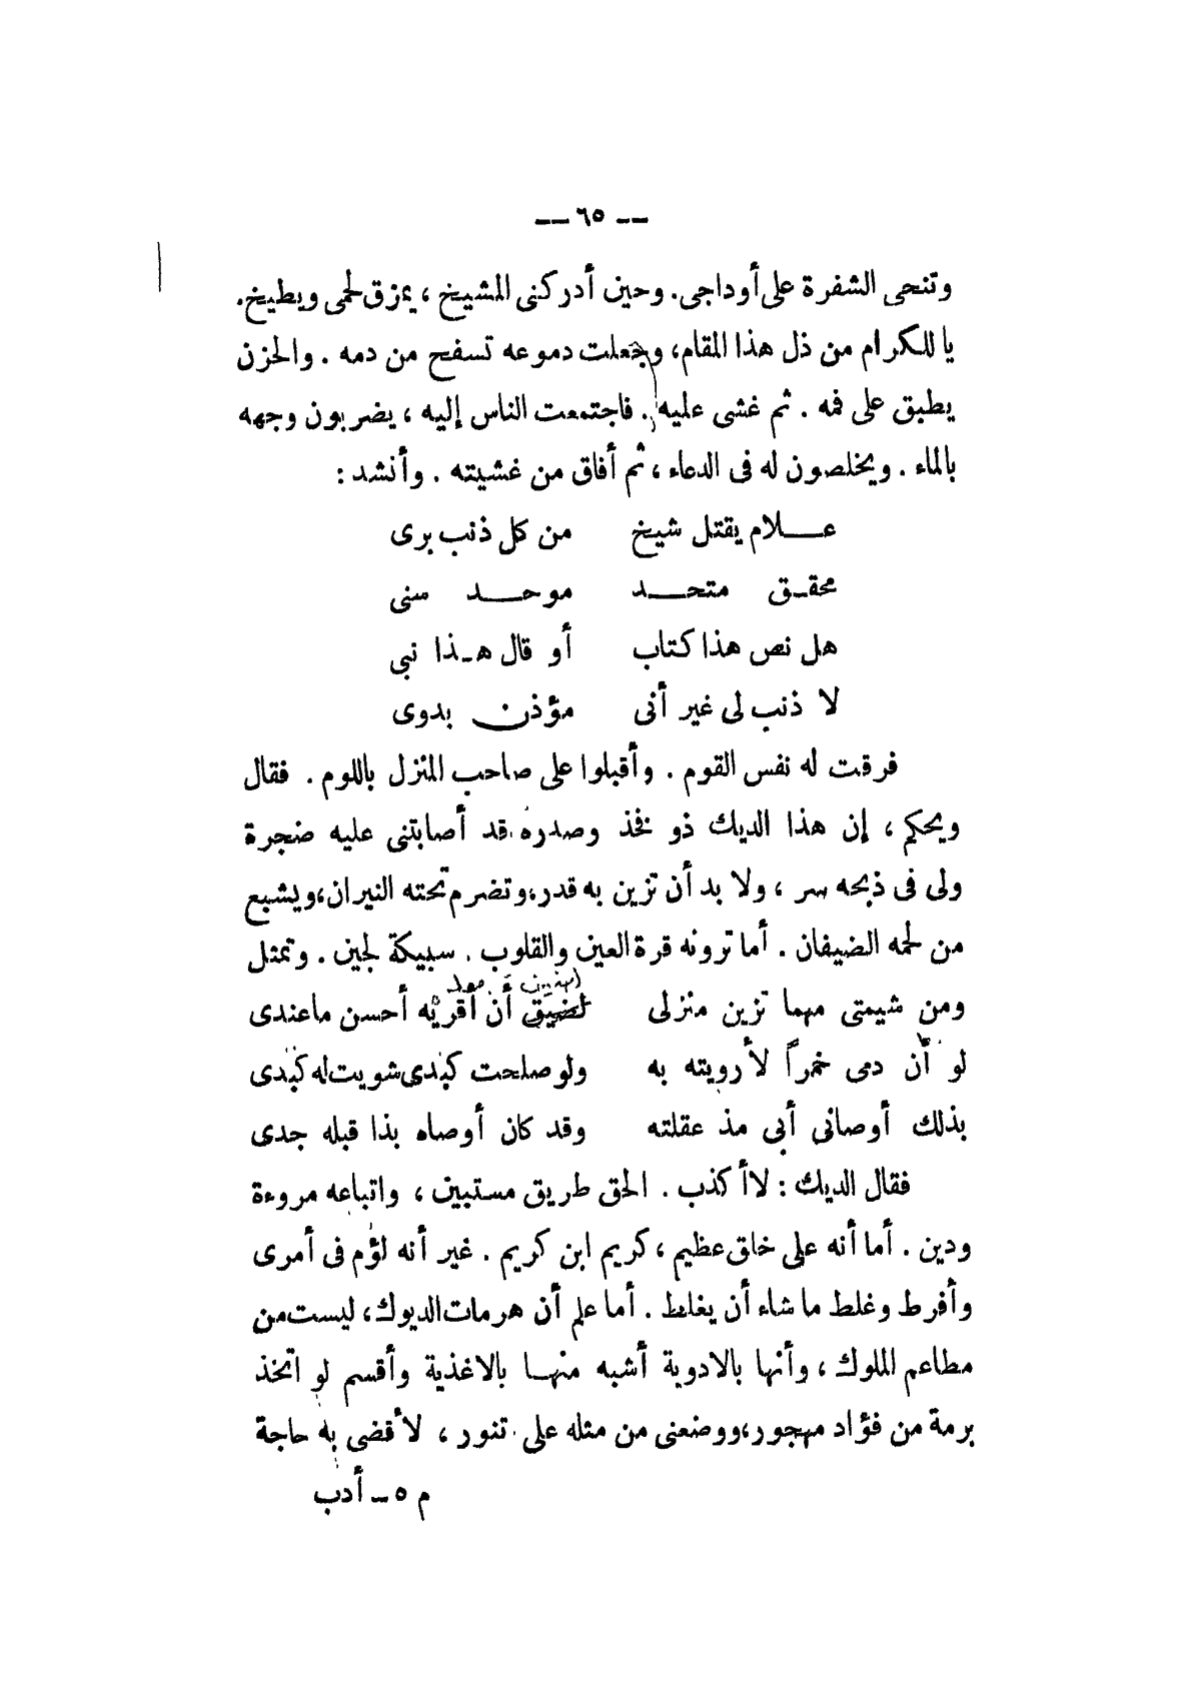 — ٦٥ —
وتنحى الشفرة على أوداجى. وحين أدركنى المشيخ ، يمزق لحمى ويطيخ.
يا للكرام من ذل هذا المقام، وجعلت دموعه تسفح من دمه . والحزن
يطبق على فمه . ثم غشى عليه . فاجتمعت الناس إليه ، يضربون وجهه
بالماء . ويخلصون له فى الدعاء ، ثم أفاق من غشيته . وأنشد :
عـــلام يقتل شيخ من كل ذنب برى
محقـق متحـــد موحـــد سنى
هل نص هذا كتاب أو قال هـذا نبى
لا ذنب لى غير أنى مؤذن بدوى
فرقت له نفس القوم . وأقبلوا على صاحب المنزل باللوم . فقال
ويحكم ، إن هذا الديك ذو فخذ وصدره قد أصابتنى عليه ضجرة
ولى فى ذبحه سر ، ولا بد أن تزين به قدر، وتضرم تحته النيران، ويشبع
من لحمه الضيفان . أما ترونه قرة العين والقلوب . سبيكة لجين . وتمثل
ومن شيمتى مهما تزين منزلى لضيق أن أقريه أحسن ماعندى
لو أن دمى خمراً لأرويته به ولو صلحت كبدى شويت له كبدى
بذلك أوصانى أبى مذ عقلته وقد كان أوصاه بذا قبله جدى
فقال الديك : لا أكذب . الحق طريق مستبين ، واتباعه مروءة
ودين . أما أنه على خاق عظيم ، كريم ابن كريم . غير أنه لؤم فى أمرى
وأفرط وغلط ما شاء أن يغلط . أما علم أن هرمات الديوك، ليست من
مطاعم الملوك ، وأنها بالادوية أشبه منهـا بالاغذية وأقسم لو اتخذ
برمة من فؤاد مهجور، ووضعنى من مثله على تنور ، لأقضى به حاجة
م ٥ ــ أدب